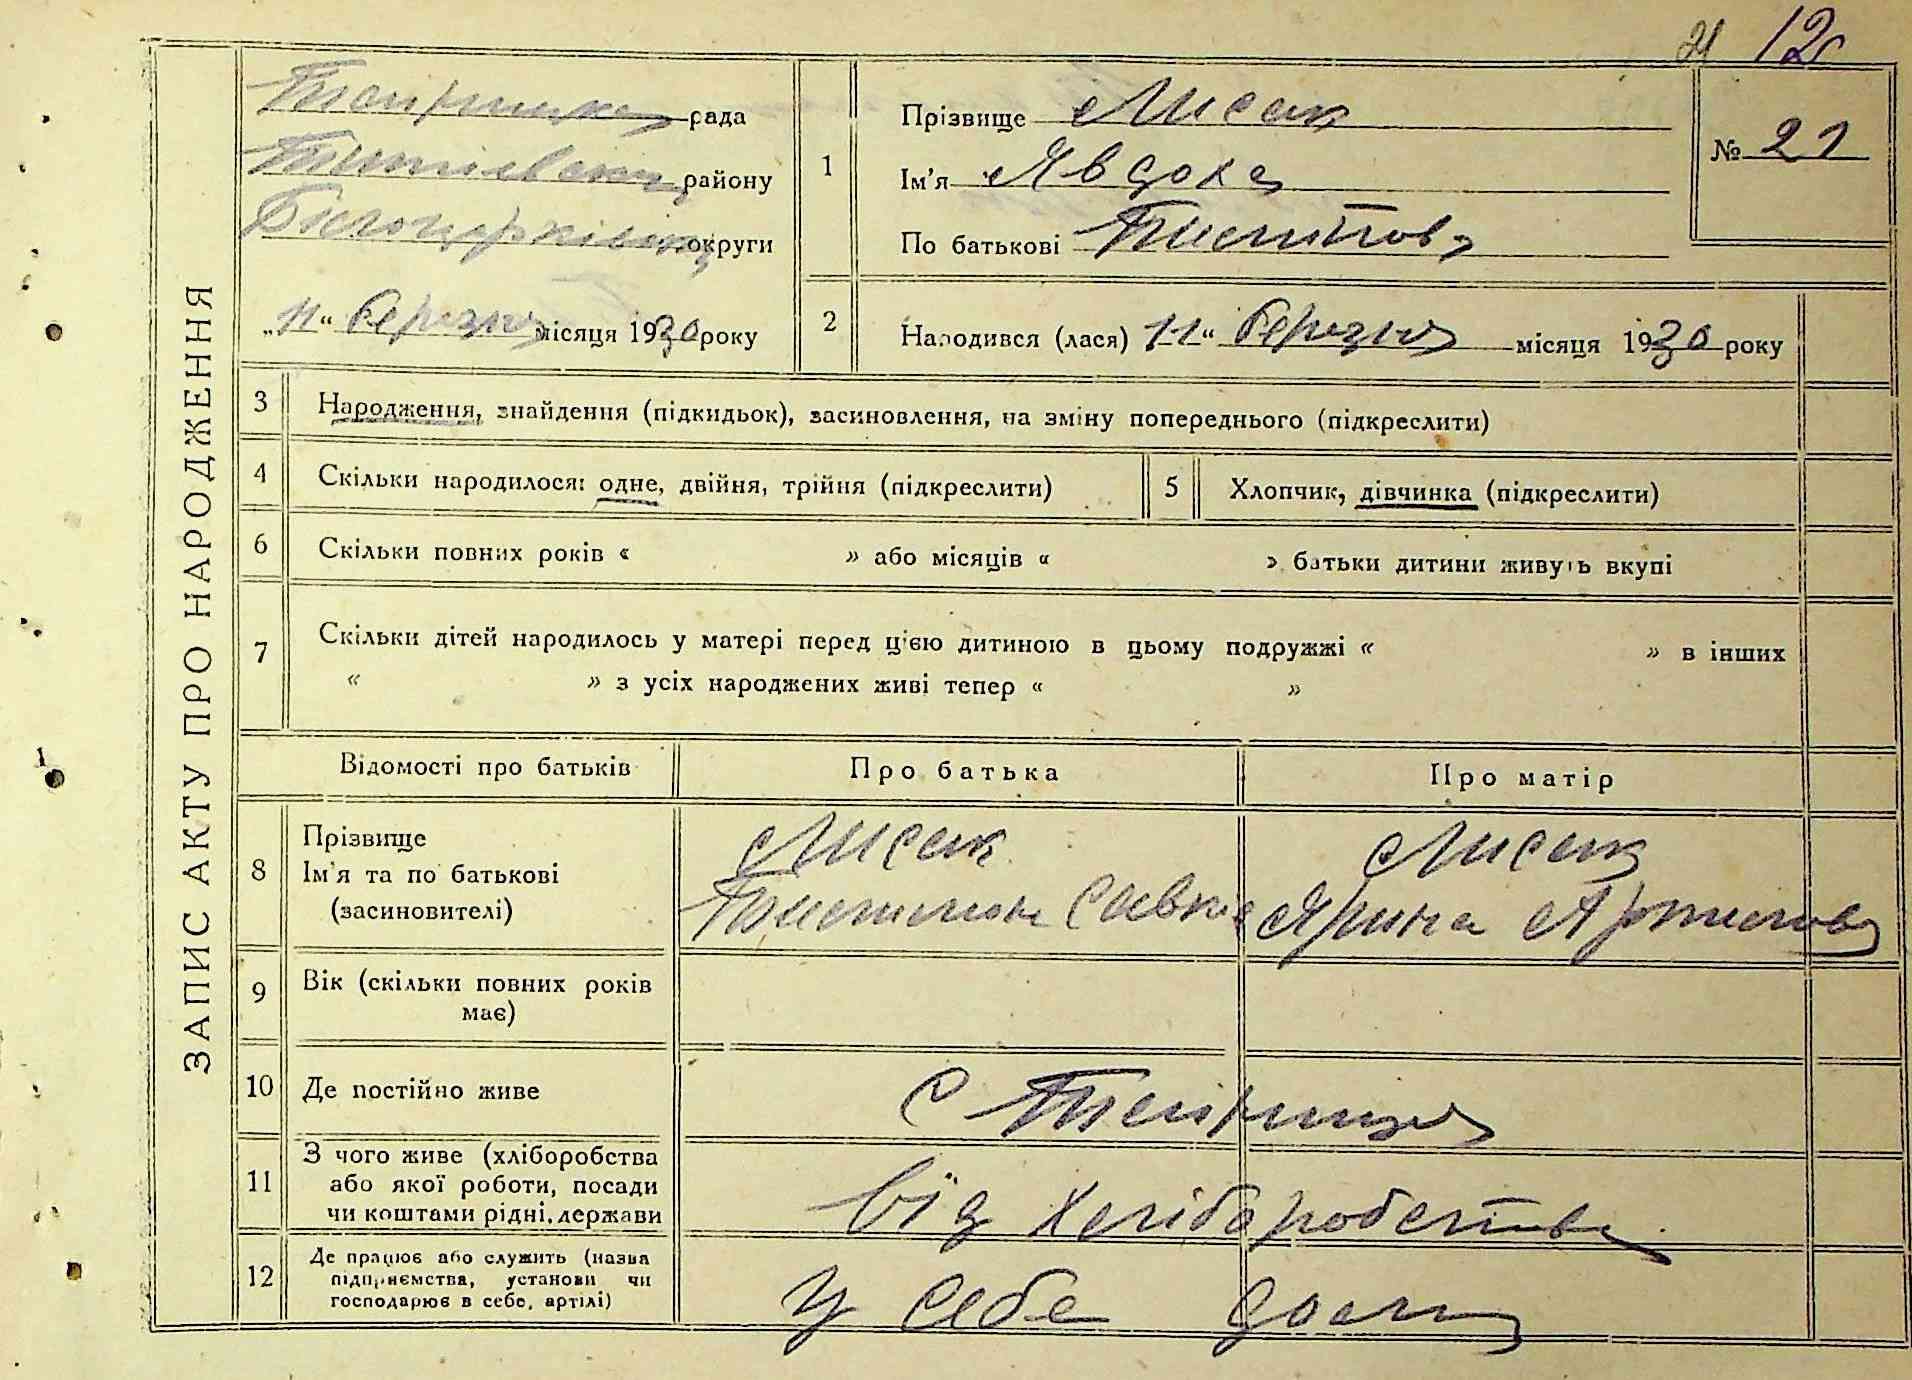 12
ЗАПИС АКТУ ПРО НАРОДЖЕННЯ
Тетіївська району
Білоцерківська округи
„11“ березня місяця 1930 року
1
Прізвище Лисак
Ім'я Явдоха
По батькові
№ 21
2
Народився (лася) 11“ березня місяця 1930 року
3
Народження, знайдення (підкидьок), засиновлення, на зміну попереднього (підкреслити)
4
Скільки народилося: одне, двійня, трійня (підкреслити)
5
Хлопчик, дівчинка (підкреслити)
6
Скільки повних років « » або місяців « » батьки дитини живуть вкупі
7
Скільки дітей народилось у матері перед цією дитиною в цьому подружжі « » в інших
« » з усіх народжених живі тепер « »
Відомості про батьків
Про батька
Про матір
8
Прізвище
Ім'я та по батькові
(засиновителі)
Лисак
Савков
Лисак
Ярина Артемова
9
Вік (скільки повних років
має)
10
Де постійно живе
с
11
З чого живе (хліборобства
або якої роботи, посади
чи коштами рідні, держави
від хліборобства
12
Де працює або служить (назва
підприємства, установи чи
господарює в себе, артілі)
У себе дома